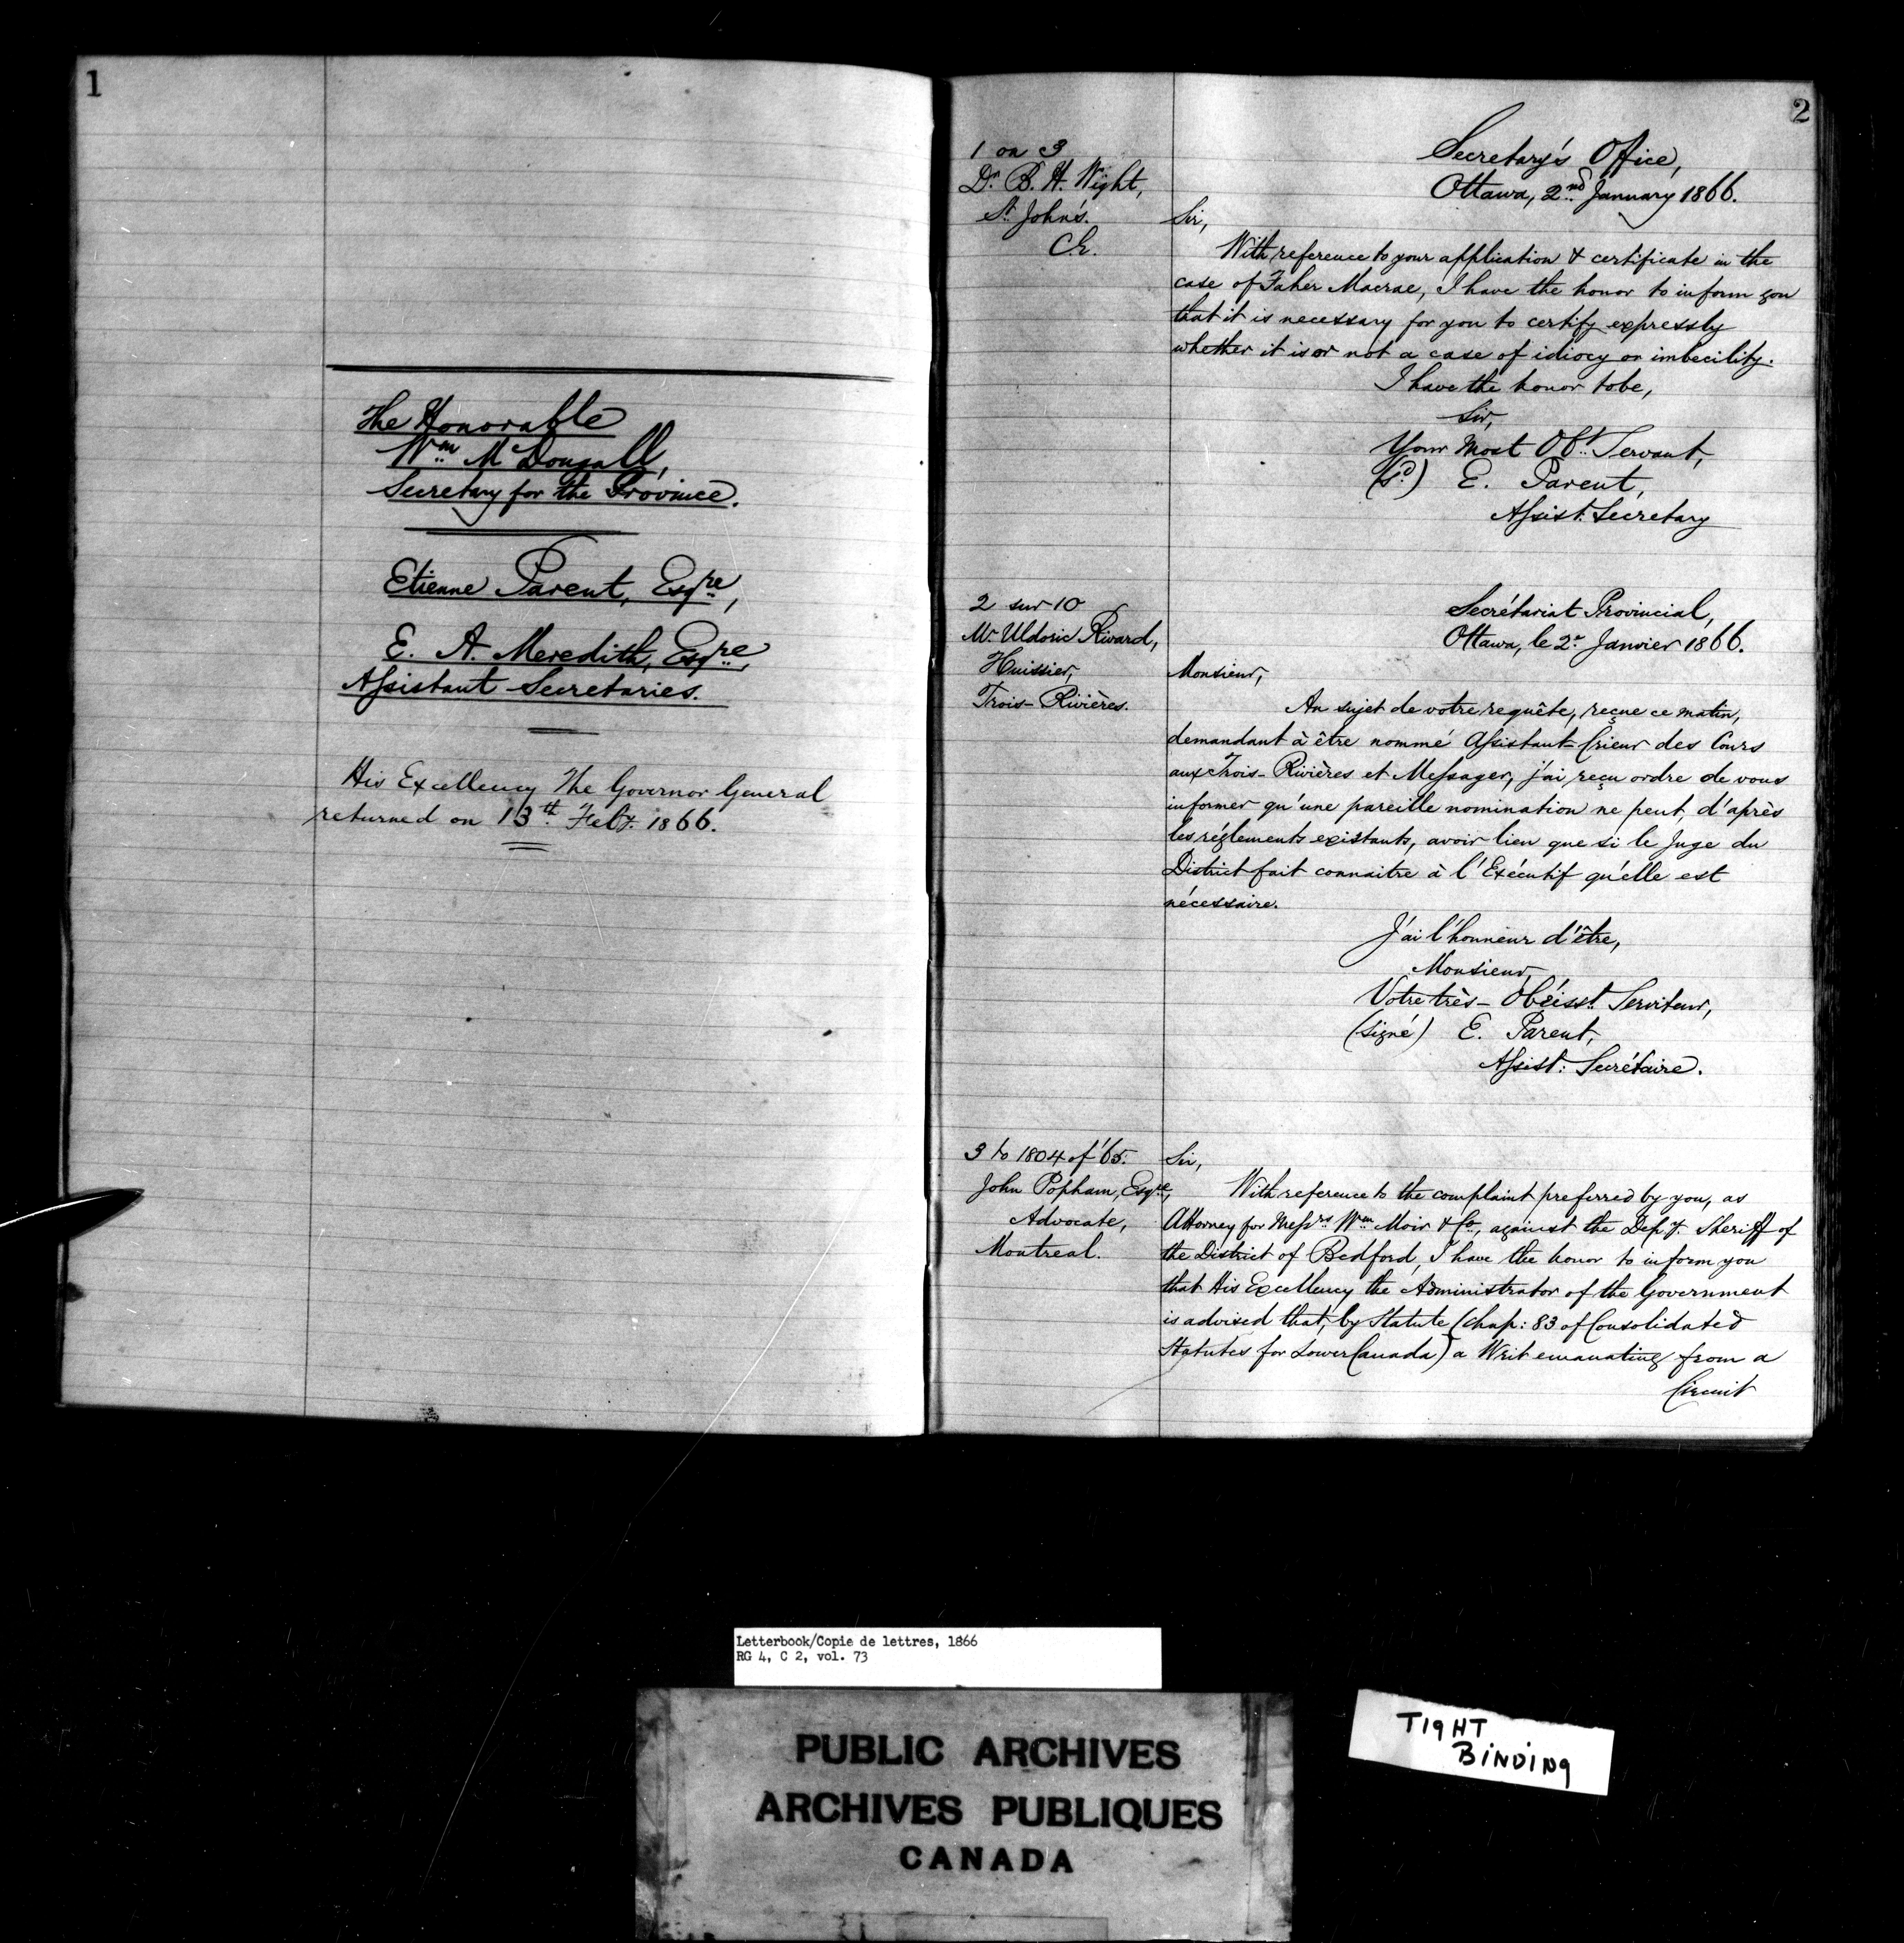 1
The Honorable
Wm McDougall,
Secretary for the Province.
Etienne Parent, Esqre,
E. A. Meredith, Esqre,
Assistant Secretaries.
His Excellency The Governor General
returned on 13th Feby. 1866.
2
1 on 3
Dr. B. H. Wight,
St. John's.
C.E.
Secretary's Office,
Ottawa, 2nd January 1866.
Sir,
With reference to your application & certificate in the
case of Faher Macrae, I have the honor to inform you
that it is necessary for you to certify expressly
whether it is or not a case of idiocy or imbecility.
I have the honor to be,
Sir,
Your Most Obt. Servant,
(sd.) E. Parent,
Assist. Secretary
2 sur 10
Mr. Uldoric Rivard,
Huissier,
Trois-Rivières.
Secrétariat Provincial,
Ottawa, le 2e. Janvier 1866.
Monsieur,
Au sujet de votre requête, reçue ce matin,
demandant à être nommé Assistant-Crieur des Cours
aux Trois-Rivières et Messager, j'ai reçu ordre de vous
informer qu'une pareille nomination ne peut, d'après
les réglements existants, avoir lieu que si le Juge du
District fait connaitre à l'Exécutif qu'elle est
nécessaire.
J'ai l'honneur d'être,
Monsieur,
Votre très-Obéisst. Serviteur,
(signé) E. Parent,
Assist: Secrétaire.
3 to 1804 of '65.
John Popham, Esqre,
Advocate,
Montreal.
Sir,
With reference to the complaint preferred by you, as
Attorney for Messrs Wm Moir & Co., against the Depy. Sheriff of
the District of Bedford, I have the honor to inform you
that His Excellency the Administrator of the Government
is advised that, by Statute (Chap: 83 of Consolidated
Statutes for Lower Canada) a Writ emanating from a
Circuit
Letterbook/Copie de lettres, 1866
RG 4, C 2, vol. 73
PUBLIC ARCHIVES
ARCHIVES PUBLIQUES
CANADA
TIGHT
BINDING